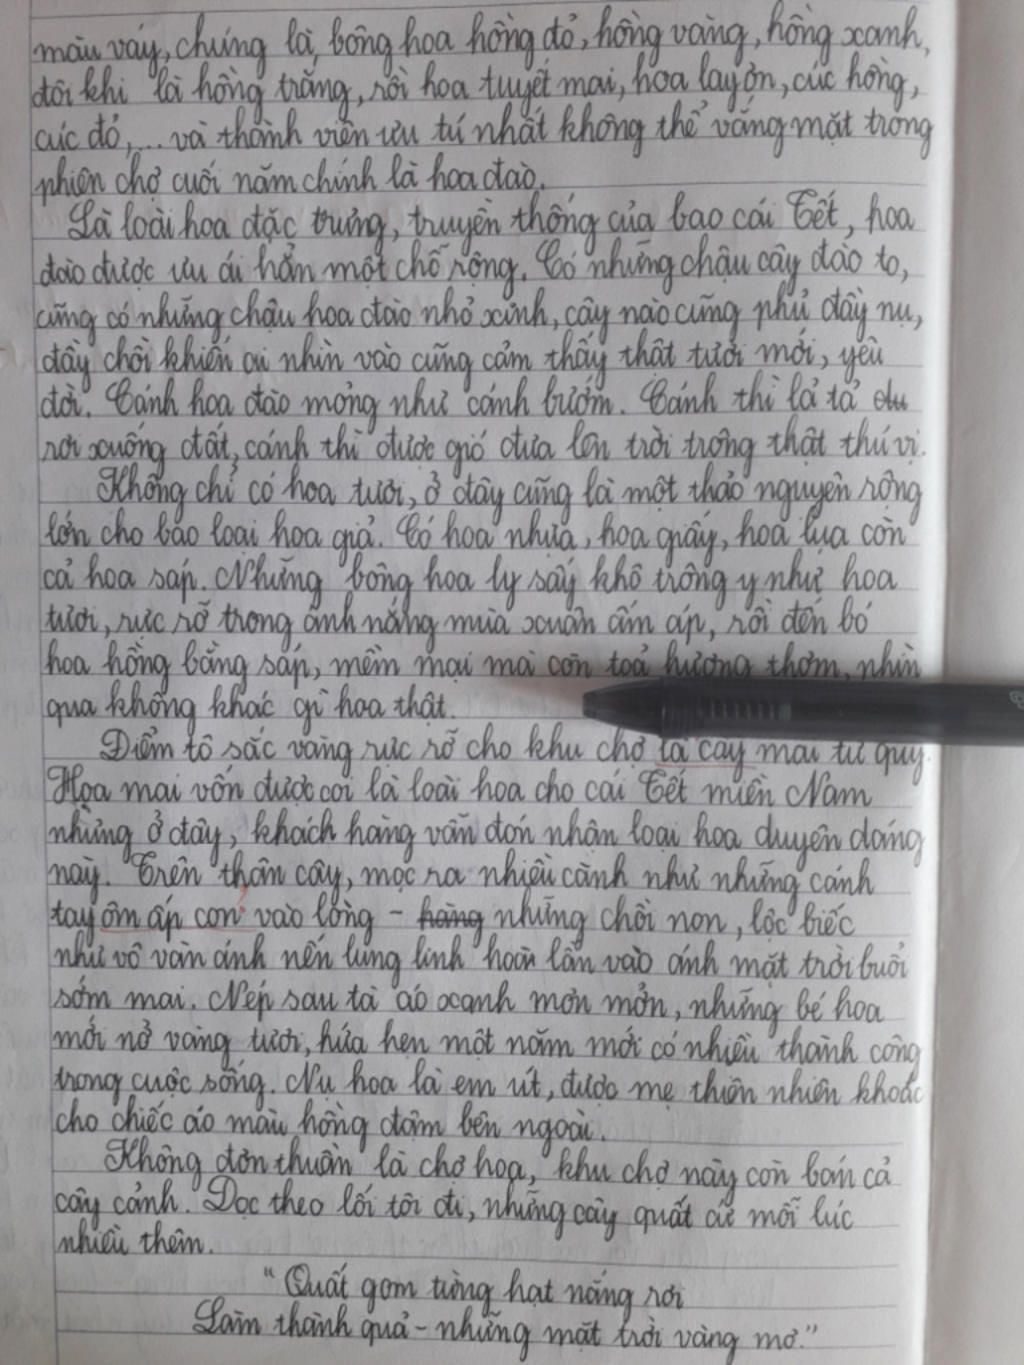 màu váy, chúng là bông hoa hồng đỏ, hồng vàng, hồng xanh,
đôi khi là hồng trắng, rồi hoa tuyết mai, hoa layơn, cúc hồng,
cúc đỏ,... và thành viên ưu tú nhất không thể vắng mặt trong
phiên chợ cuối năm chính là hoa đào.
Là loài hoa đặc trưng, truyền thống của bao cái Tết, hoa
đào được ưu ái hẳn một chỗ rộng. Có những chậu cây đào to,
cũng có những chậu hoa đào nhỏ xinh, cây nào cũng phủ đầy nụ,
đầy chồi khiến ai nhìn vào cũng cảm thấy thật tươi mới, yêu
đời. Cánh hoa đào mỏng như cánh bướm. Cánh thì lả tả
rơi xuống đất, cánh thì được gió đưa lên trời trông thật thú vị.
Không chỉ có hoa tươi, ở đây cũng là một thảo nguyên rộng
lớn cho bao loại hoa giả. Có hoa nhựa, hoa giấy, hoa lụa còn
cả hoa sáp. Những bông hoa ly sấy khô trông y như hoa
tươi, rực rỡ trong ánh nắng mùa xuân ấm áp, rồi đến bó
hoa hồng bằng sáp, mềm mại mà còn toả hương thơm, nhìn
qua không khác gì hoa thật.
Điểm tô sắc vàng rực rỡ cho khu chợ là cây mai tứ quý.
Hoa mai vốn được coi là loài hoa cho cái Tết miền Nam
nhưng ở đây, khách hàng vẫn đón nhận loại hoa duyên dáng
này. Trên thân cây, mọc ra nhiều cành như những cánh
tay ôm ấp con vào lòng - hàng những chồi non, lộc biếc
như vô vàn ánh nến lung linh hoà lẫn vào ánh mặt trời buổi
sớm mai. Nép sau tà áo xanh mơn mởn, những bé hoa
mới nở vàng tươi, hứa hẹn một năm mới có nhiều thành công
trong cuộc sống. Nụ hoa là em út, được mẹ thiên nhiên khoác
cho chiếc áo màu hồng đậm bên ngoài.
Không đơn thuần là chợ hoa, khu chợ này còn bán cả
cây cảnh. Dọc theo lối tôi đi, những cây quất cứ mỗi lúc
nhiều thêm.
"Quất gom từng hạt nắng rơi
Làm thành quả - những mặt trời vàng mơ."